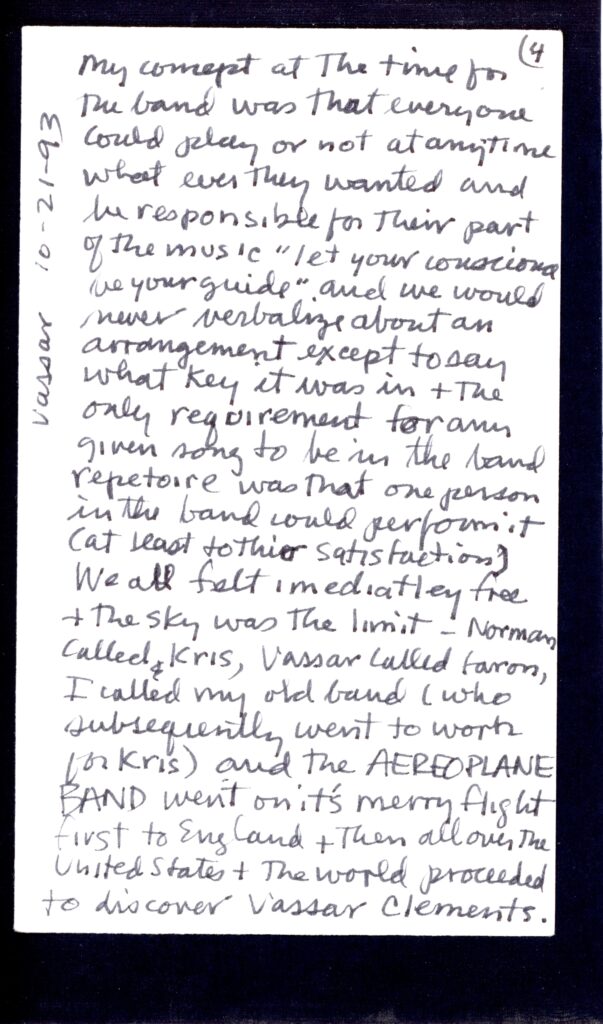 (4
My concept at The time for
The band was that everyone
could play or not at anytime
what ever they wanted and
be responsible for Their part
of The music "let your conscience
be your guide" and we would
never verbalize about an
arrangement except to say
what key it was in + The
only requirement for any
given song to be in the band
repetoire was That one person
in the band could perform it
(at least to thier satisfaction)
We all felt imediatley free
+ the sky was the limit - Norman
called Kris, Vassar called Faron,
I called my old band (who
subsequently went to work
for Kris) and the AEREOPLANE
BAND went on it's merry flight
first to England + Then all over The
United States + The world proceeded
to discover Vassar Clements.
Vassar 10-21-93